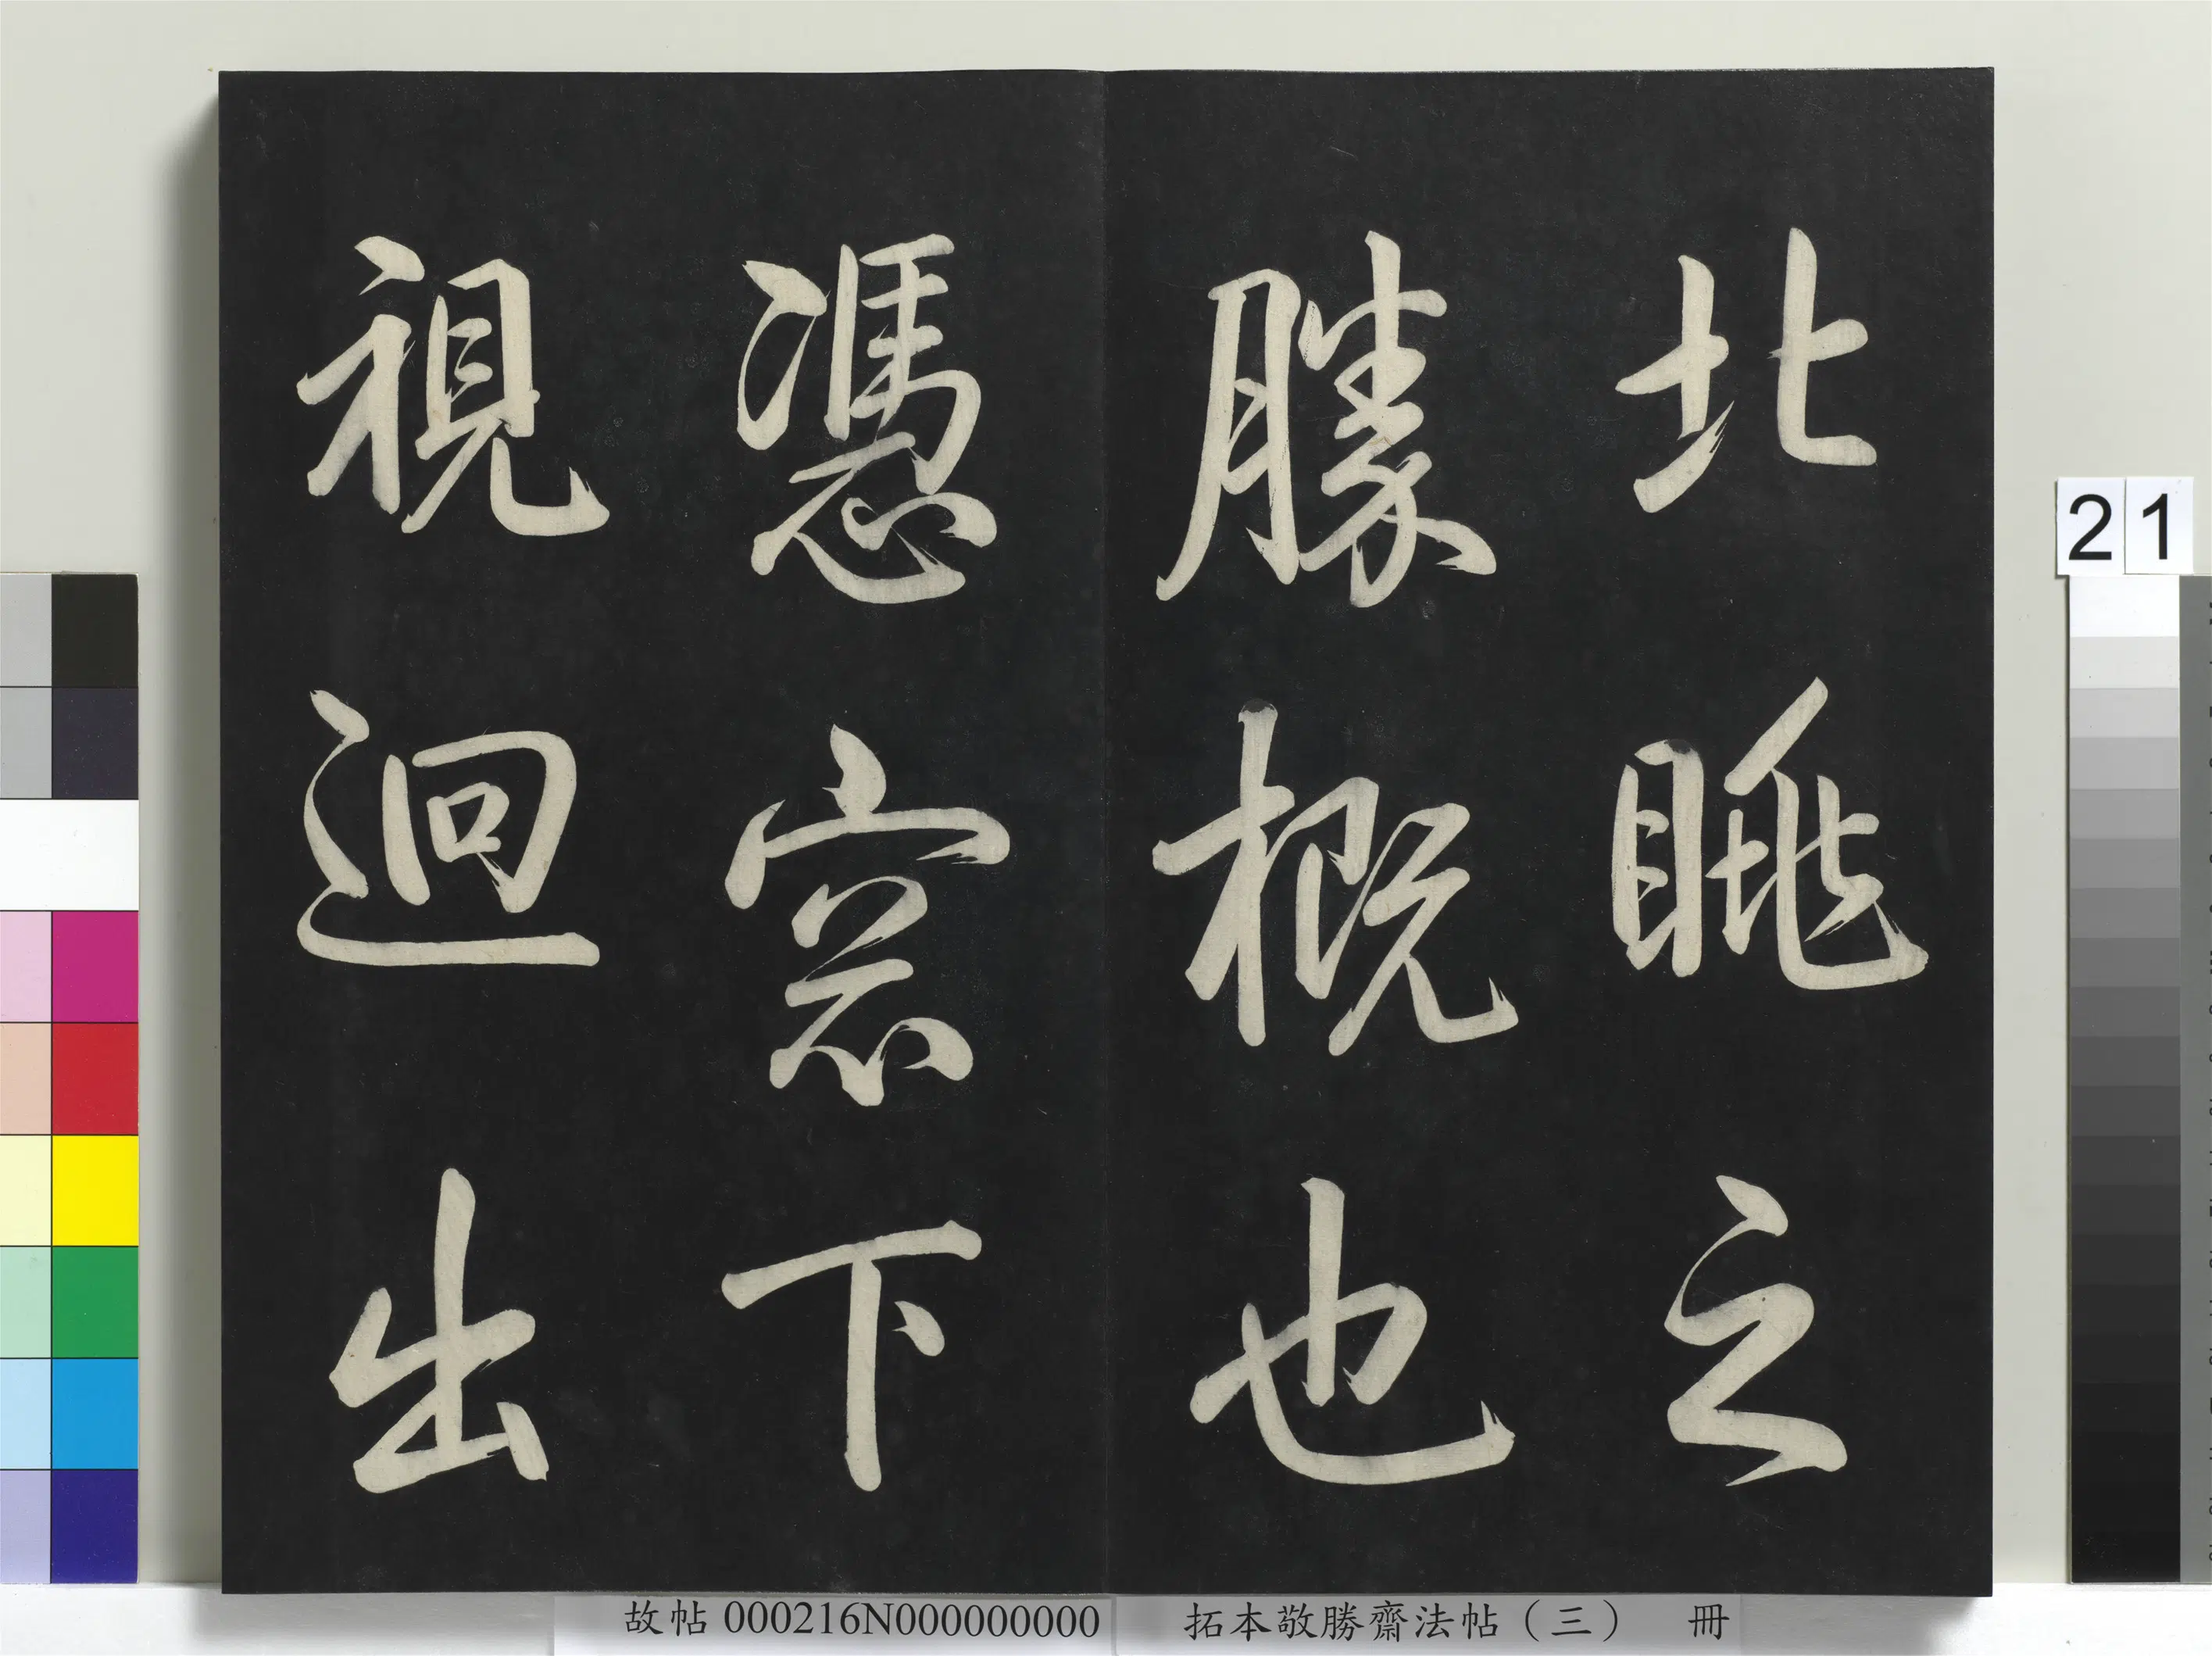 北眺之
勝概也
憑窓下
視迴出
21
故帖 000216N000000000
拓本敬勝齋法帖（三） 冊